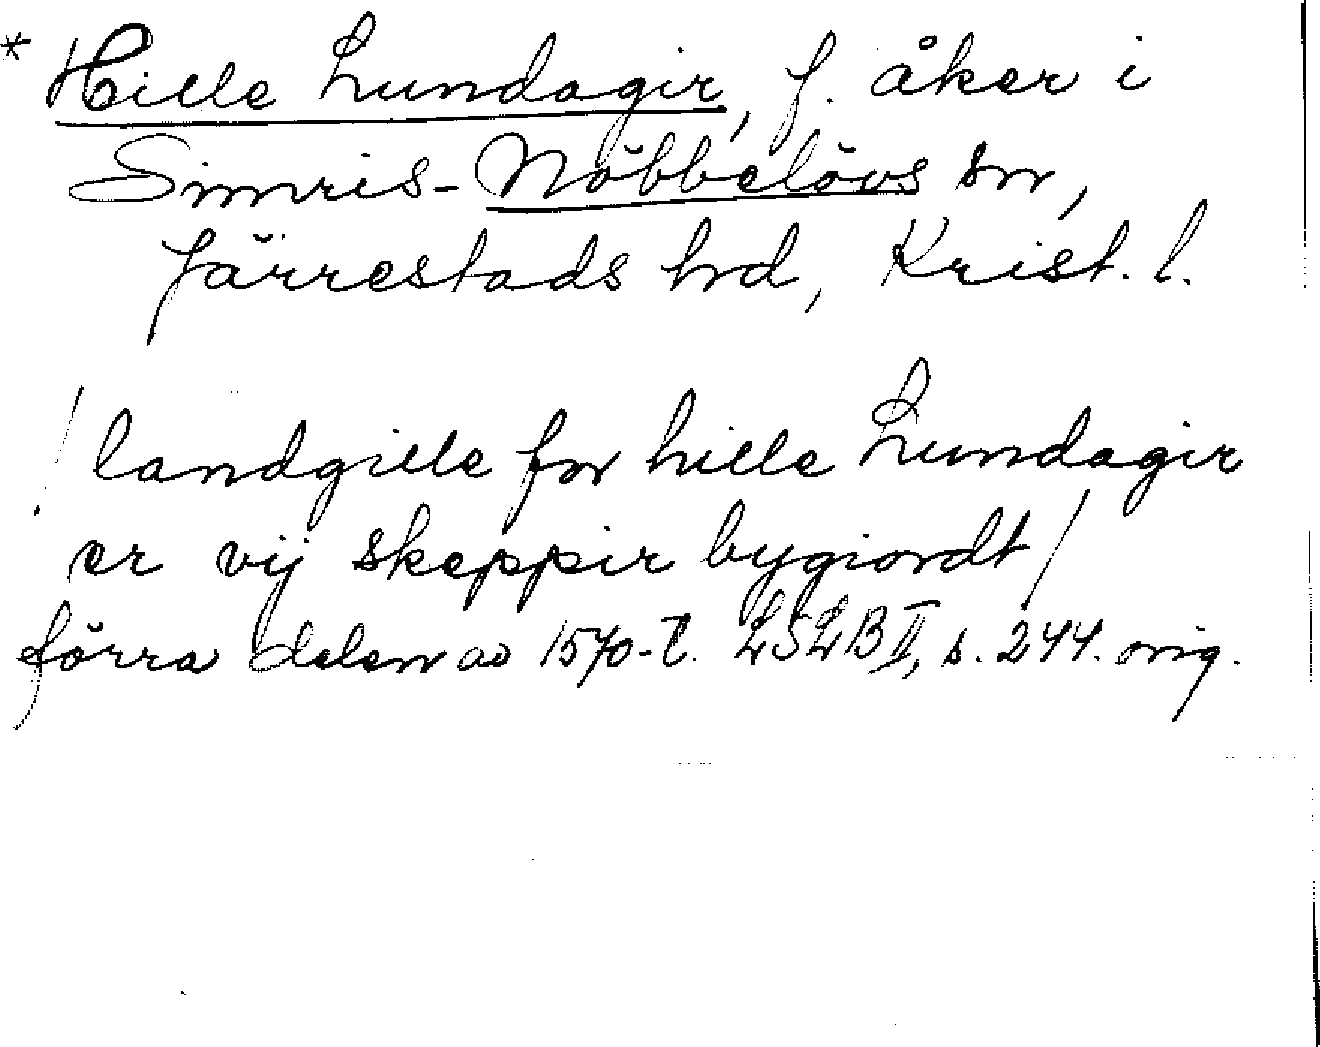 * Hille Lundagir, f. åker i
Simris-Nöbbelövs sn,
Järrestads hd, Krist. l.
/landgille for hille Lundagir
er vij skeppir bygiordt/
förra delen av 1570-t. LSLB II, s. 244. orig.